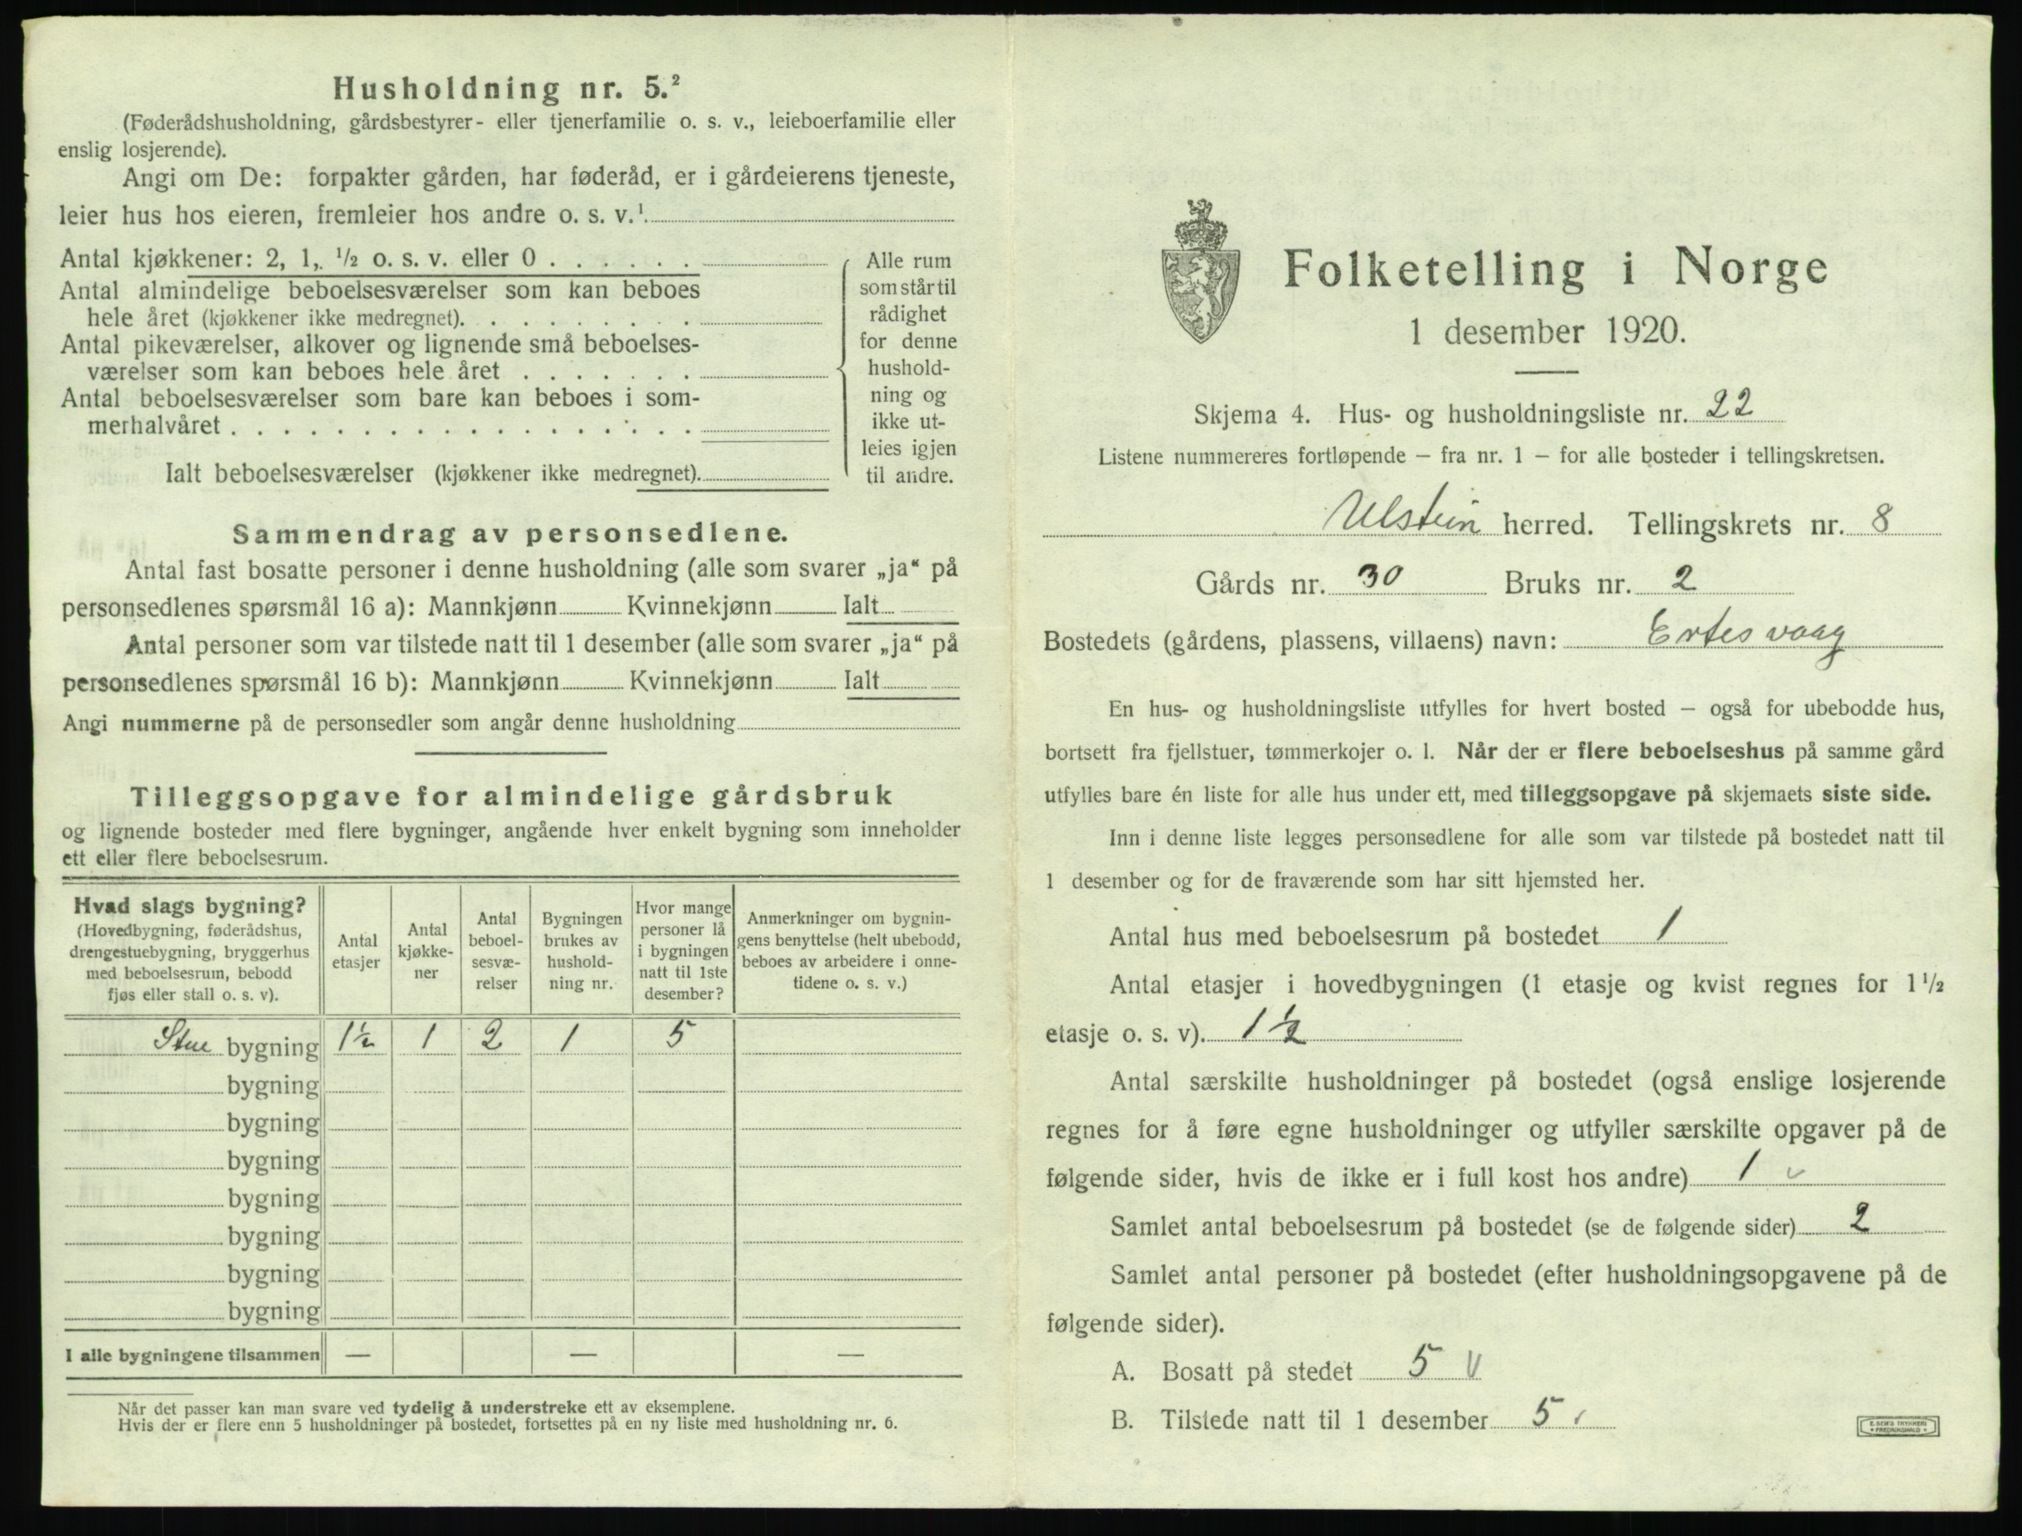 Husholdning nr. 5.²
(Føderådshusholdning, gårdsbestyrer- eller tjenerfamilie o. s. v., leieboerfamilie eller
enslig losjerende).
Angi om De: forpakter gården, har føderåd, er i gårdeierens tjeneste,
leier hus hos eieren, fremleier hos andre o. s. v.¹
Antal kjøkkener: 2, 1, ½ o. s. v. eller 0 . . . . . .
Antal almindelige beboelsesværelser som kan beboes
hele året (kjøkkener ikke medregnet). . . . . . . . .
Antal pikeværelser, alkover og lignende små beboelses-
værelser som kan beboes hele året . . . . . . .
Antal beboelsesværelser som bare kan beboes i som-
merhalvåret . . . . . . . . . . . . . . . . . .
Ialt beboelsesværelser (kjøkkener ikke medregnet).
Alle rum
som står til
rådighet
for denne
hushold-
ning og
ikke ut-
leies igjen
til andre.
Sammendrag av personsedlene.
Antal fast bosatte personer i denne husholdning (alle som svarer „ja“ på
personsedlenes spørsmål 16 a): Mannkjønn Kvinnekjønn Ialt
Antal personer som var tilstede natt til 1 desember (alle som svarer „ja“ på
personsedlenes spørsmål 16 b): Mannkjønn Kvinnekjønn Ialt
Angi nummerne på de personsedler som angår denne husholdning
Tilleggsopgave for almindelige gårdsbruk
og lignende bosteder med flere bygninger, angående hver enkelt bygning som inneholder
ett eller flere beboelsesrum.
Hvad slags bygning?
(Hovedbygning, føderådshus,
drengestuebygning, bryggerhus
med beboelsesrum, bebodd
fjøs eller stall o. s. v).
Antal
etasjer
Antal
kjøkke-
ner
Antal
beboel-
sesvæ-
relser
Bygningen
brukes av
hushold-
ning nr.
Hvor mange
personer lå
i bygningen
natt til 1ste
desember?
Anmerkninger om bygnin-
gens benyttelse (helt ubebodd,
beboes av arbeidere i onne-
tidene o. s. v.)
Stue bygning 1½ 1 2 1 5
bygning
bygning
bygning
bygning
bygning
bygning
bygning
I alle bygningene tilsammen — — —
Når det passer kan man svare ved tydelig å understreke ett av eksemplene.
Hvis der er flere enn 5 husholdninger på bostedet, fortsettes på en ny liste med husholdning nr. 6.
Folketelling i Norge
1 desember 1920.
Skjema 4. Hus- og husholdningsliste nr. 22
Listene nummereres fortløpende – fra nr. 1 – for alle bosteder i tellingskretsen.
Ulstein herred. Tellingskrets nr. 8
Gårds nr. 30 Bruks nr. 2
Bostedets (gårdens, plassens, villaens) navn: Ertesvaag
En hus- og husholdningsliste utfylles for hvert bosted – også for ubebodde hus,
bortsett fra fjellstuer, tømmerkojer o. l. Når der er flere beboelseshus på samme gård
utfylles bare én liste for alle hus under ett, med tilleggsopgave på skjemaets siste side.
Inn i denne liste legges personsedlene for alle som var tilstede på bostedet natt til
1 desember og for de fraværende som har sitt hjemsted her.
Antal hus med beboelsesrum på bostedet 1
Antal etasjer i hovedbygningen (1 etasje og kvist regnes for 1½
etasje o. s. v). 1½
Antal særskilte husholdninger på bostedet (også enslige losjerende
regnes for å føre egne husholdninger og utfyller særskilte opgaver på de
følgende sider, hvis de ikke er i full kost hos andre) 1 v
Samlet antal beboelsesrum på bostedet (se de følgende sider) 2
Samlet antal personer på bostedet (efter husholdningsopgavene på de
følgende sider).
A. Bosatt på stedet 5 v
B. Tilstede natt til 1 desember 5 v
E. SEM'S TRYKKERI
• FREDRIKSHALD •